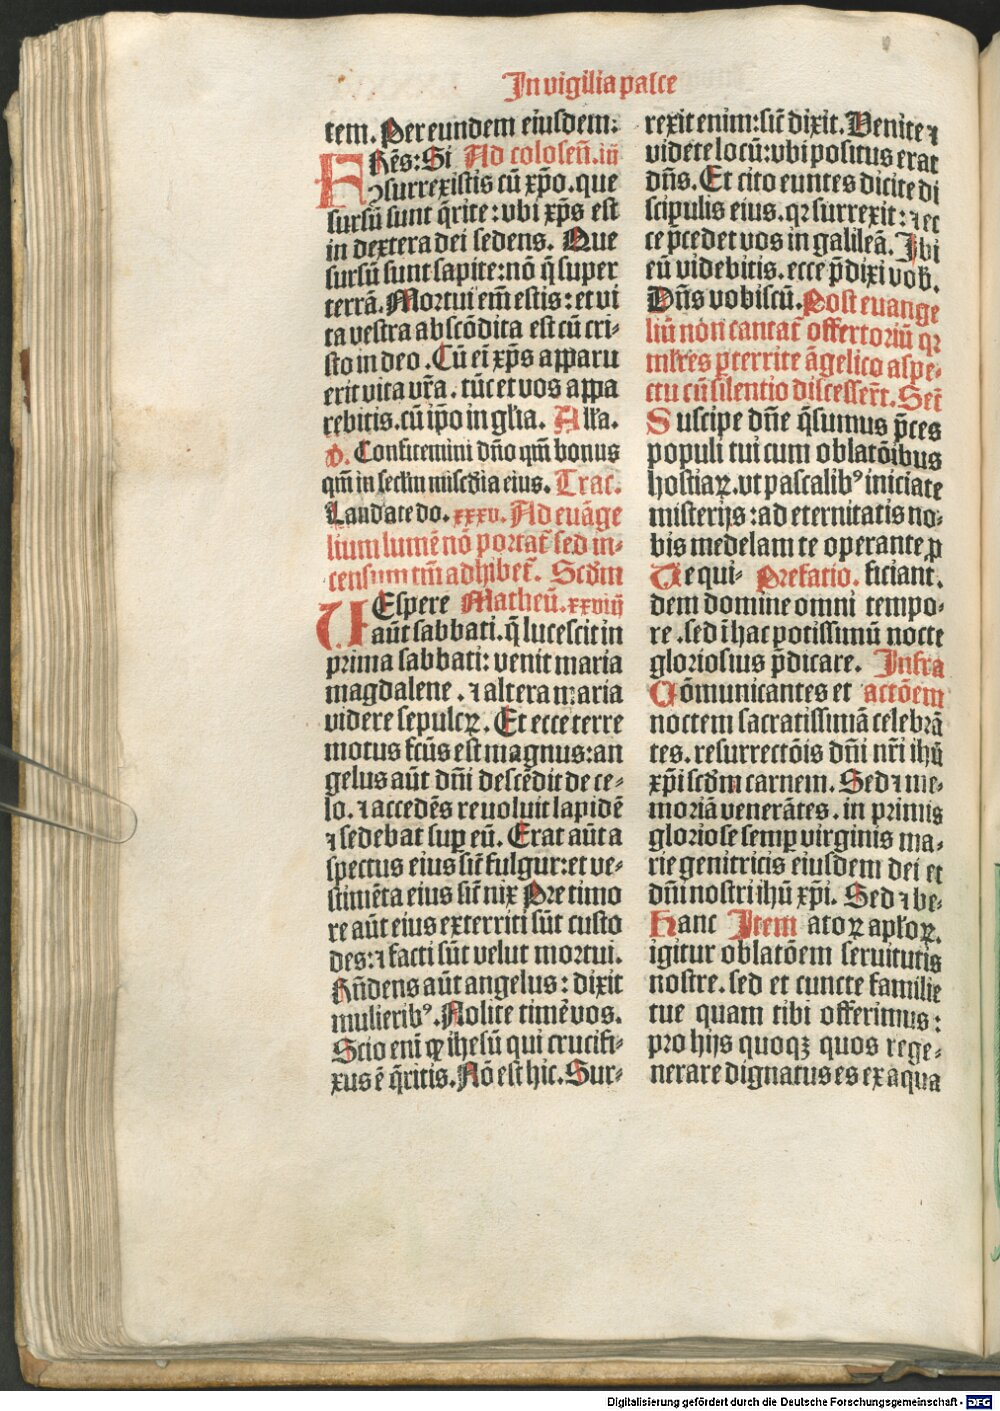 In vigilia pasce
tem. Per eundem eiusdem:
FRēs: Si Ad colosen̄. iii
ↄsurrexistis cū xp̄o. que
sursū sunt q̄rite: vbi xp̄s est
in dextera dei sedens. Que
sursū sunt sapite: nō q̄ super
terrā. Mortui em̄ estis: et vi
ta vestra abscōdita est cū cri⸗
sto in deo. Cū ei̅ xp̄s apparu
erit vita vr̄a. tūc et vos appa
rebitis. cū ip̄o in gl̄ia. All̄a.
V. Confitemini dn̄o qm̄ bonus
qm̄ in sec̄lm misc̄dia eius. Trac.
Laudate do. xxxv. Ad euāge
lium lumē nō portat̄ sed in⸗
censum tm̄ adhibet̄. Scd̄m
VEspere Matheū. xxviij
aūt sabbati. q̄ lucescit in
prima sabbati: venit maria
magdalene. ⁊ altera maria
videre sepulcꝝ. Et ecce terre
motus fc̄us est magnus: an
gelus aūt dn̄i descēdit de ce⸗
lo. ⁊ accedēs reuoluit lapidē
⁊ sedebat suꝑ eū. Erat aūt a
spectus eius sic̄ fulgur: et ve⸗
stimēta eius sic̄ nix Pre timo
re aūt eius exterriti sūt custo
des: ⁊ facti sūt velut mortui.
Rn̄dens aūt angelus: dixit
mulieribꝰ. Nolite timē vos.
Scio eni̅ ꝙ ihesū qui crucifi⸗
xus ē q̄ritis. Nō est hic. Sur⸗
rexit enim: sic̄ dixit. Venite ⁊
videte locū: vbi positus erat
dn̄s. Et cito euntes dicite di
scipulis eius. qꝛ surrexit: ⁊ ec
ce p̄cedet vos in galileā. Ibi
eū videbitis. ecce p̄dixi vob̄.
Dn̄s vobiscū. Post euange
liū non cantat̄ offertoriū qꝛ
ml̄res ꝑterrite āgelico aspe⸗
ctu cū silentio discesser̄t. Secr̄
Suscipe dn̄e q̄sumus p̄ces
populi tui cum oblatōibus
hostiaꝝ. vt pascalibꝰ iniciate
misterijs: ad eternitatis no⸗
bis medelam te operante ꝓ
Te qui⸗ Prefatio. ficiant.
dem domine omni tempo⸗
re. sed ī hac potissimū nocte
gloriosius p̄dicare. Infra
Cōmunicantes et actōem
noctem sacratissimā celebrā
tes. resurrectōis dn̄i nr̄i ihū
xp̄i scd̄m carnem. Sed ⁊ me⸗
moriā venerātes. in primis
gloriose semꝑ virginis ma⸗
rie genitricis eiusdem dei et
dn̄i nostri ihū xp̄i. Sed ⁊ be⸗
Hanc Item atoꝝ apl̄oꝝ.
igitur oblatōem seruitutis
nostre. sed et cuncte familie
tue quam tibi offerimus:
pro hijs quoqꝫ quos rege⸗
nerare dignatus es ex aqua
Digitalisierung gefördert durch die Deutsche Forschungsgemeinschaft - DFG